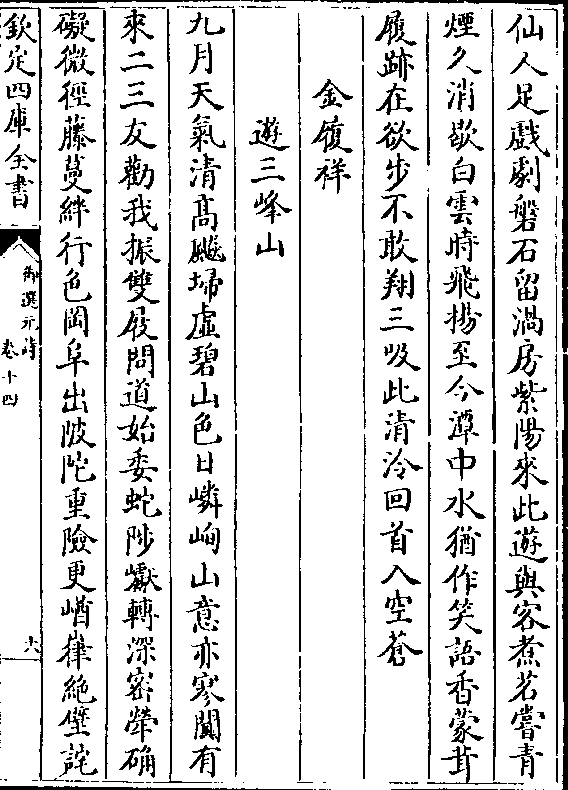 仙人足戲劇盤石留渦房紫陽來此遊與客煮茗嘗青
煙久消歇白雲時飛揚至今潭中水猶作笑語香蒙茸
履跡在欲步不敢翔三吸此清泠回首入空蒼
金履祥
遊三峰山
九月天氣清高飈埽虛碧山色日嶙峋山意亦寥闃有
來二三友勸我振雙屐問道始委蛇陟巘轉深密犖确
礙微徑藤蔓絆行色岡阜出陂陀重險更崷崒絶壁詫
欽定四庫全書
御選元詩
卷十四
六